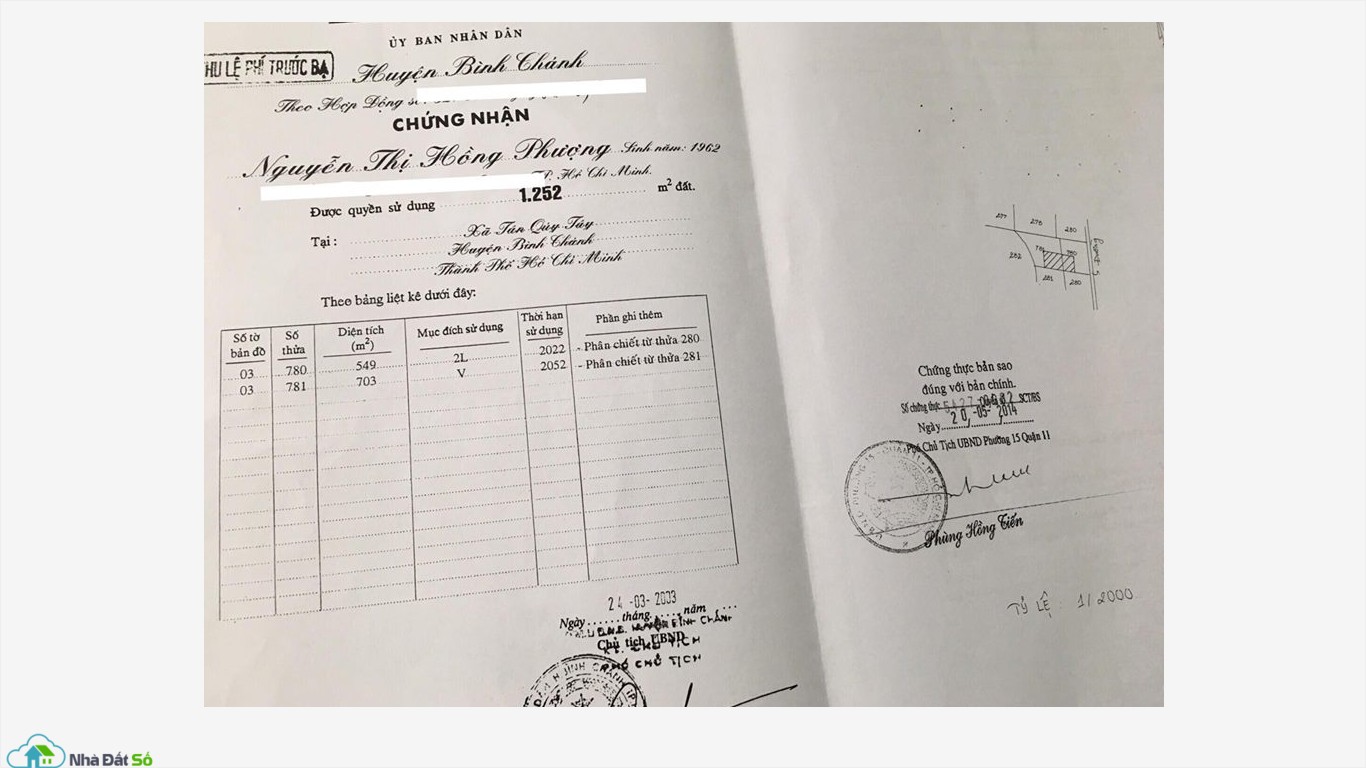 ỦY BAN NHÂN DÂN
HU LỆ PHÍ TRƯỚC BẠ
Huyện Bình Chánh
Theo Hợp Đồng số
CHỨNG NHẬN
Nguyễn Thị Hồng Phượng Sinh năm: 1962
TP. Hồ Chí Minh.
Được quyền sử dụng 1.252 m² đất.
Tại: Xã Tân Qúy Tây
Huyện Bình Chánh
Thành Phố Hồ Chí Minh
Theo bảng liệt kê dưới đây:
Số tờ bản đồ Số thửa Diện tích (m²) Mục đích sử dụng Thời hạn sử dụng Phần ghi thêm
03 780 549 2L 2022 - Phân chiết từ thửa 280
03 781 703 V 2052 - Phân chiết từ thửa 281
24 -03- 2003
Ngày......tháng......năm
Chủ tịch UBND
PHÓ CHỦ TỊCH
277 278 280
282 781 780
281 280
Chứng thực bản sao
đúng với bản chính.
Số chứng thực SCT/BS
Ngày 20 -05- 2014
Phó Chủ Tịch UBND Phường 15 Quận 11
Phùng Hồng Tiến
TỶ LỆ 1/2000
Nhà Đất Số